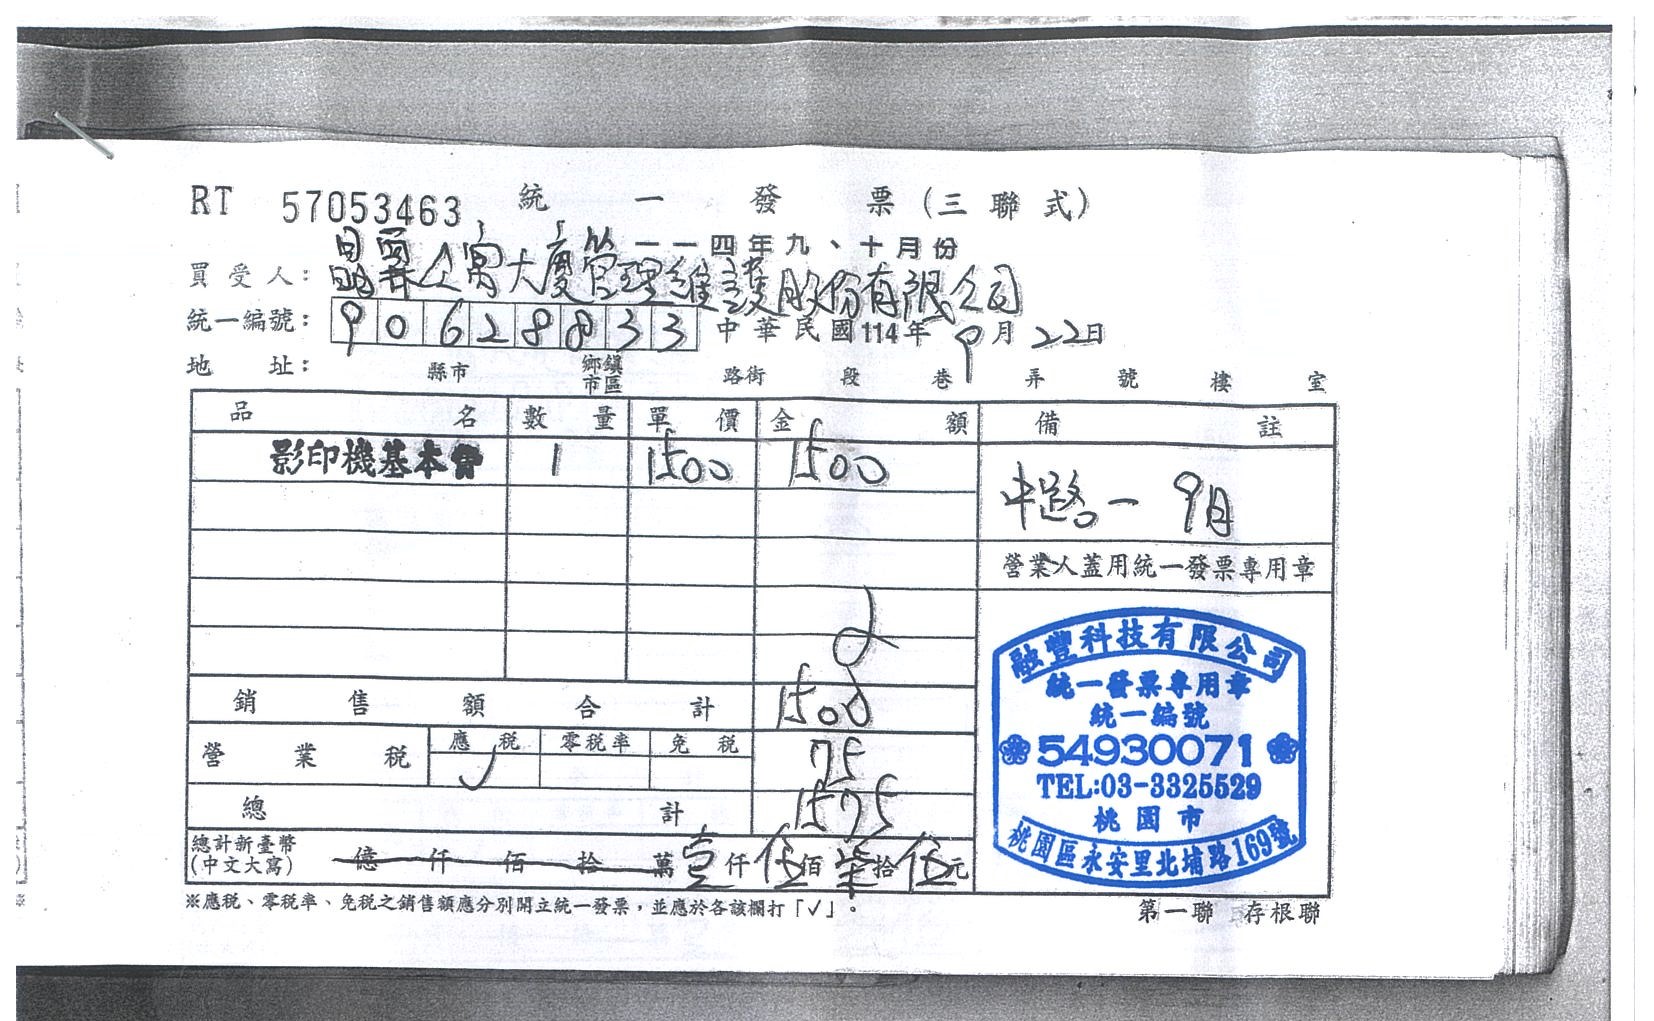 RT 57053463 統一發票(三聯式)
一一四年九、十月份
買受人：晶霖公寓大廈管理維護股份有限公司
統一編號：90628833 中華民國114年9月22日
地址： 縣市 鄉鎮市區 路街 段 巷 弄 號 樓 室
品名 數量 單價 金額 備註
影印機基本費 1 1500 1500
中路一 9月
營業人蓋用統一發票專用章
銷售額合計 1500
營業稅 應稅 零稅率 免稅 75
總計 1575
總計新臺幣(中文大寫) 億仟佰拾萬壹仟伍佰柒拾伍元
融豐科技有限公司
統一發票專用章
統一編號
54930071
TEL:03-3325529
桃園市
桃園區永安里北埔路169號
※應稅、零稅率、免稅之銷售額應分別開立統一發票，並應於各該欄打「✓」。
第一聯 存根聯